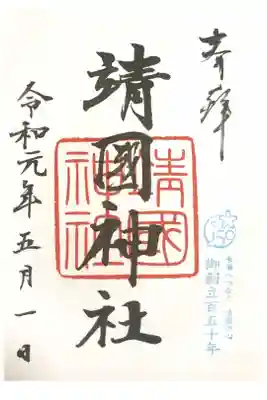 奉拝
靖國神社
靖國神社
御創立百五十年
令和元年五月一日